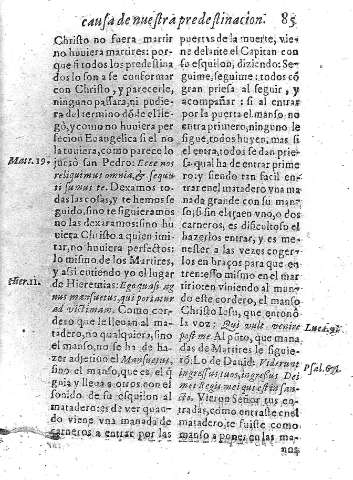 causa de nuestra predestinacion. 85
Christo no fuera martir
no huuiera martires: por-
que si todos los predestina
dos lo son a se conformar
con Christo, y parecerle,
ninguno passara, ni pudie-
ra del termino dõde el lle-
gó, y como no huuiera per
fecion Euangelica si el no
la tuuiera, como parece lo
Mat. 19. juró san Pedro: Ecce nos
reliquimus omnia, & sequu-
ti sumus te. Dexamos to-
das las cosas, y te hemos se
guido, sino te siguieramos
no las dexaramos: sino hu
uiera Christo a quien imi-
tar, no huuiera perfectos:
lo mismo de los Martires,
y assi cutiendo yo el lugar
Hier. 11. de Hieremias: Ego quasi ag
nus mansuetus, qui portatur
ad victimam. Como cor-
dero que le lleuan al ma-
tadero, no qualquiera, sino
el manso, no se ha de ha-
zer adjetiuo el Mansuetus,
sino el manso, que es el q̃
guia y lleua a otros con el
sonido de su esquilon al
matadero: es de ver quan-
do viene vna manada de
carneros a entrar por las
puertas de la muerte, vie-
ne delante el Capitan con
su esquilon, diziendo: Se-
guime, seguime: todos cõ
gran priesa al seguir, y
acompañar: si al entrar
por la puerta el manso no
entra primero, ninguno le
sigue, todos huyen, mas si
el entra, todos se dan prie-
sa qual ha de entrar prime
ro; y siendo tan facil en-
trar en el matadero vna ma
nada grande con su man-
so, si sin el traen vno, o dos
carneros, es dificultoso el
hazerlos entrar, y es me-
nester a las vezes coger-
los en braços para que en-
tren: esto mismo en el mar
tirio: en viniendo al mun-
do este cordero, el manso
Christo Iesu, que entonò
la voz: Qui vult venire Luc. 9.
post me. Al pũto, que mana
das de Martires le siguie-
rõ: Lo de Dauid: Viderunt Psal. 67.
ingressus tuos, ingressus Dei
mei Regis mei qui est in san-
cto. Vieron Señor tus en-
tradas, como entraste en el
matadero, te fuiste como
manso a poner en las ma-
nos